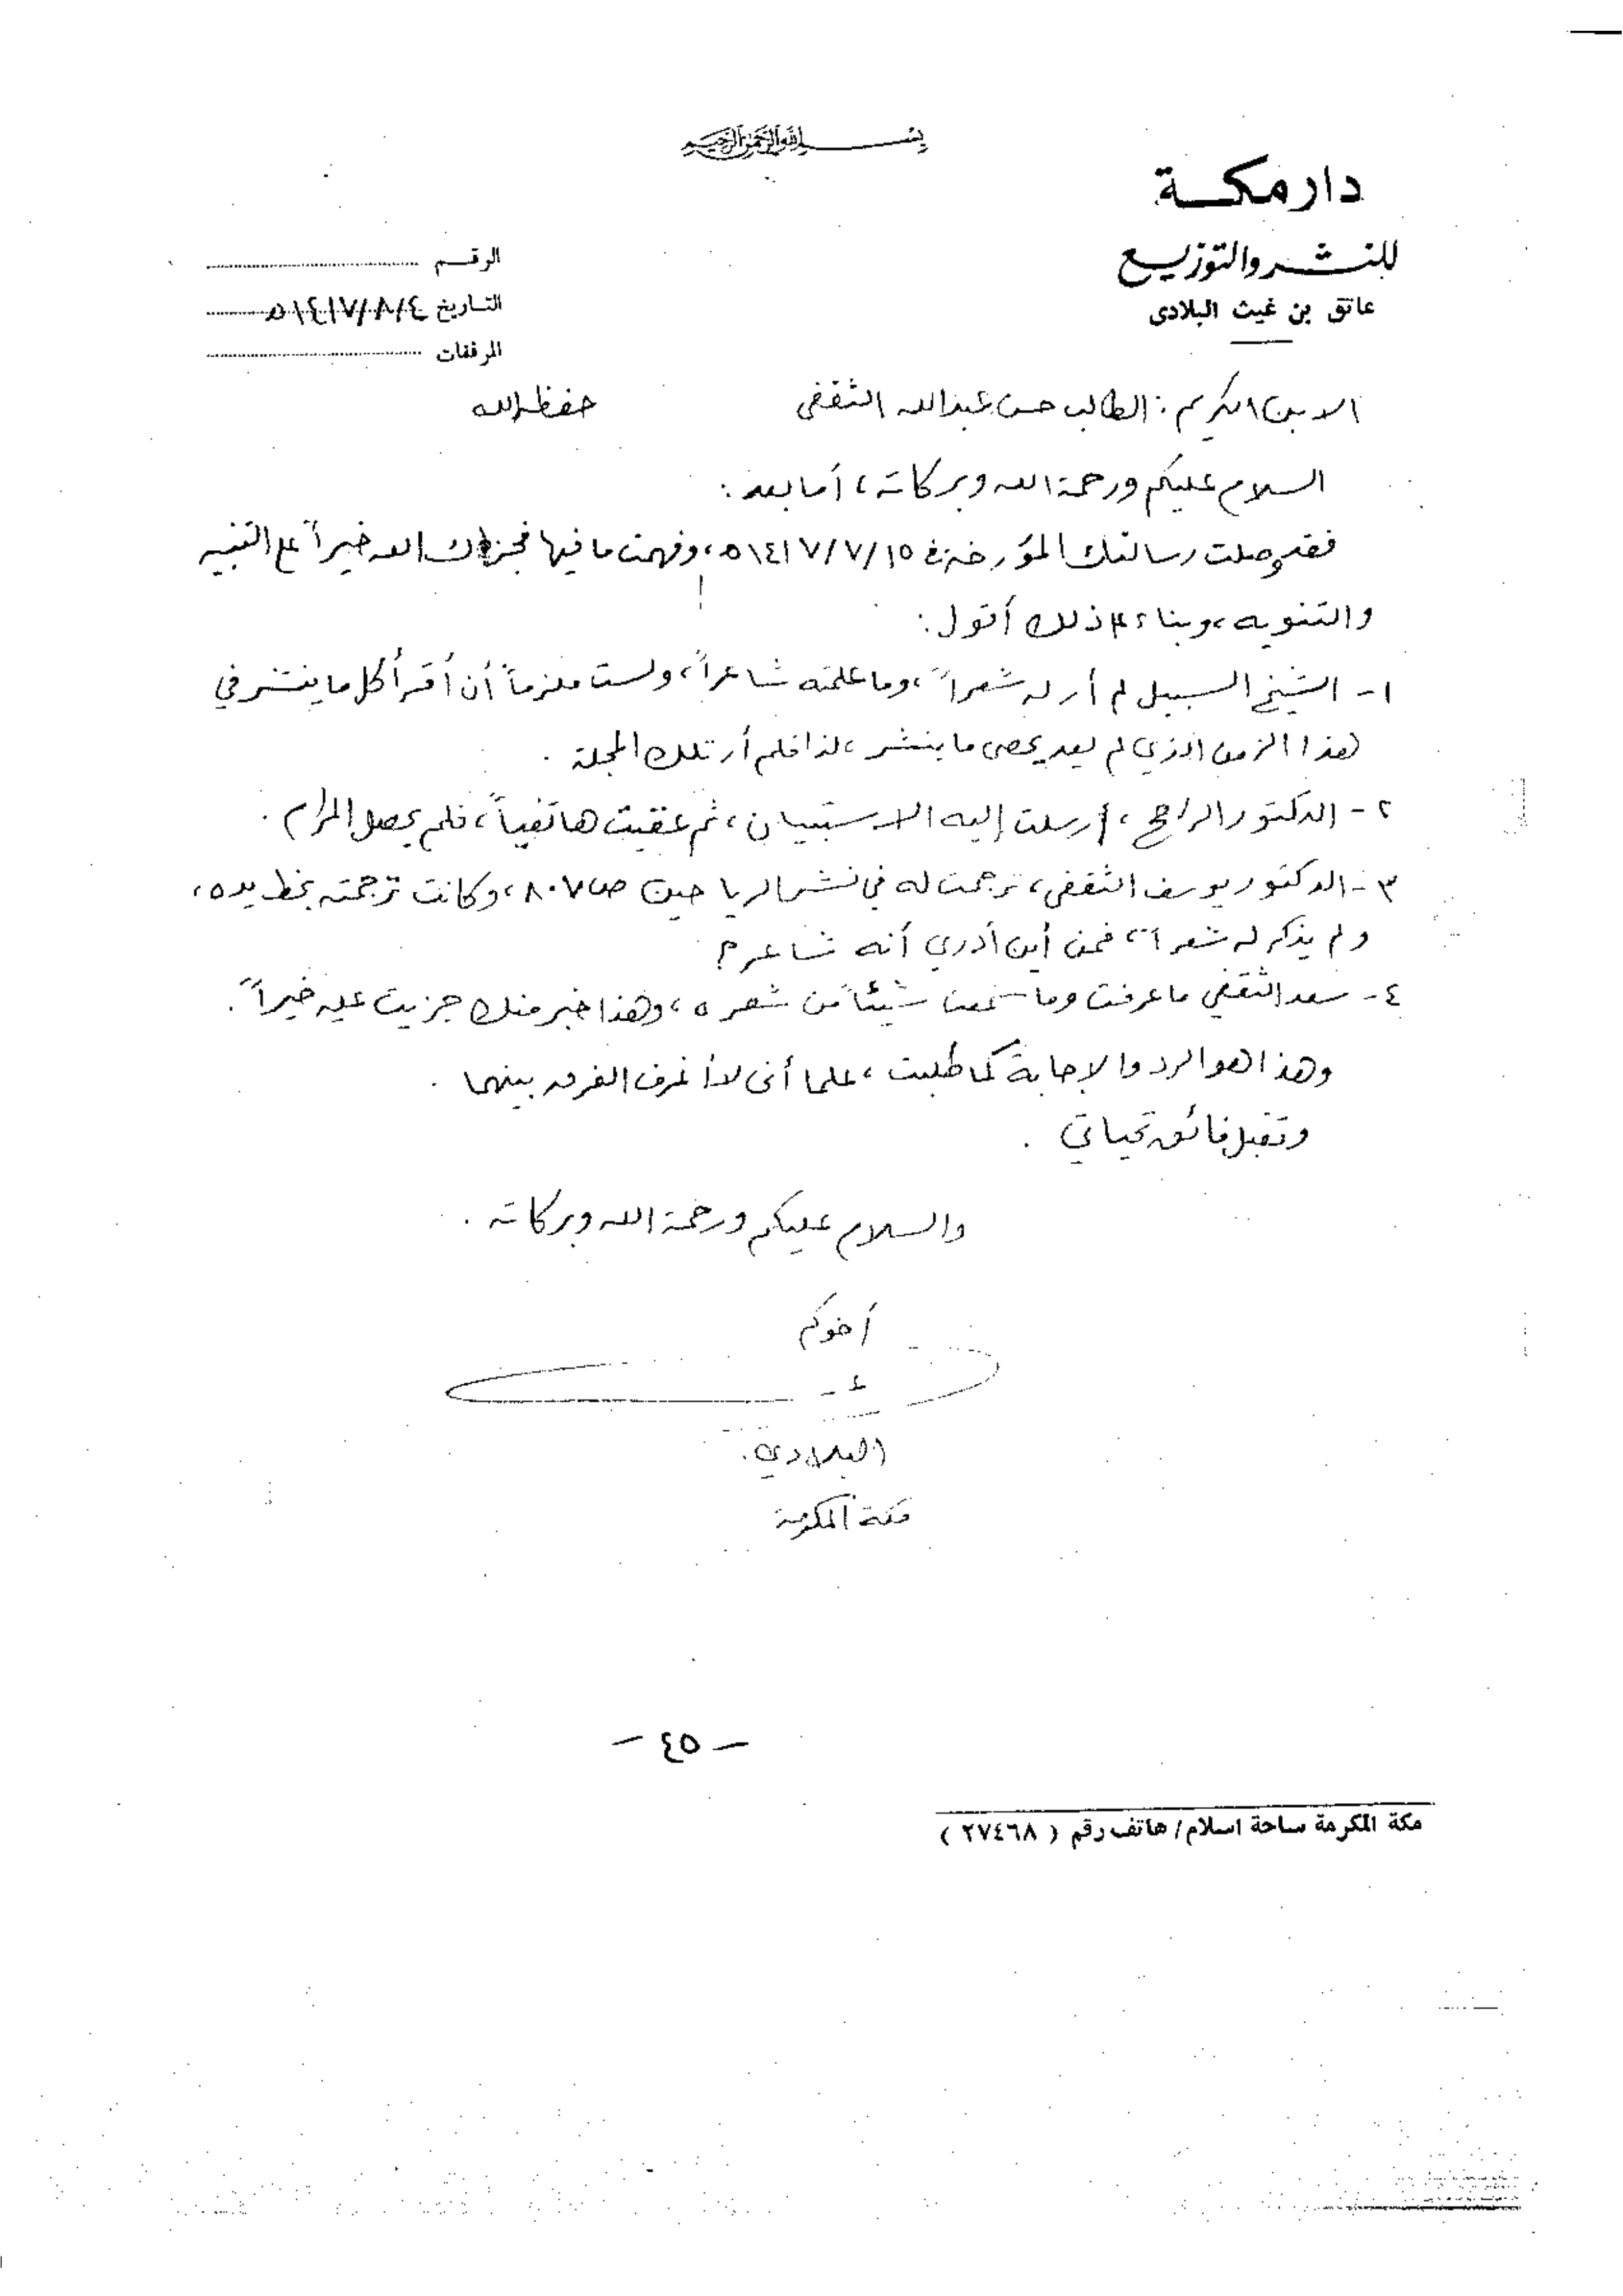 بسم الله الرحمن الرحيم
دار مكة
للنشر والتوزيع
عاتق بن غيث البلادى
الرقم
التاريخ ١٤١٧/٨/٤ه
المرفقات
الابن الكريم : الطالب حسن عبدالله الثقفي حفظه الله
السلام عليكم ورحمة الله وبركاته ، أما بعد :
فقد وصلت رسالتك المؤرخة في ١٤١٧/٧/١٥ه ، وفهمت ما فيها فجزاك الله خيراً على التنبيه
والتنويه ، وبناء على ذلك أقول :
١- الشيخ السبيل لم أر له شعراً ، وما علمته شاعراً ، ولست ملزماً أن أقرأ كل ما ينشر في
هذا الزمن الذي لم يعد يحصى ما ينشر ، لذا فلم أر تلك المجلة .
٢- الدكتور الراجح ، أرسلت إليه الاستبيان ، ثم عقبت هاتفياً ، فلم يحصل المرام .
٣- الدكتور يوسف الثقفي ، ترجمت له في نشر الرياحين ص ٨٠٧ ، وكانت ترجمته بخط يده ،
ولم يذكر له شعراً ، فمن أين أدري أنه شاعر ؟
٤- سعد الثقفي ما عرفت وما سمعت شيئاً من شعره ، وهذا خبر منك جزيت عليه خيراً .
وهذا هو الرد والإجابة كما طلبت ، علما أني لا أعرف الفرق بينهما .
وتقبل فائق تحياتي .
والسلام عليكم ورحمة الله وبركاته .
أخوكم
البلادي .
مكة المكرمة
— ٤٥ —
مكة المكرمة ساحة اسلام / هاتف رقم ( ٢٧٤٦٨ )